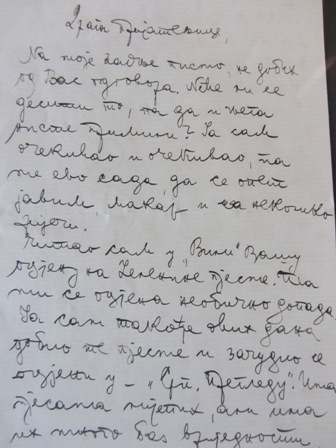 Драги Пријатељице,
На моје задње писмо, не добих
од Вас одговора. Неће ли се
десити то, па да и њега
нисте примили? Ја сам
очекивао и очекивао, па
ме ево сада, да се опет
јавим макар и са неколико
ријечи.
Читао сам у „Вили" Вашу
оцјену на Јеленине пјесме. Та
ми се оцјена необично допада.
Ја сам такође ових дана
добио те пјесме и зачудио се
оцјени у - „Срп. Прегледу". Има
пјесама лијепих, али има
их много без вриједности